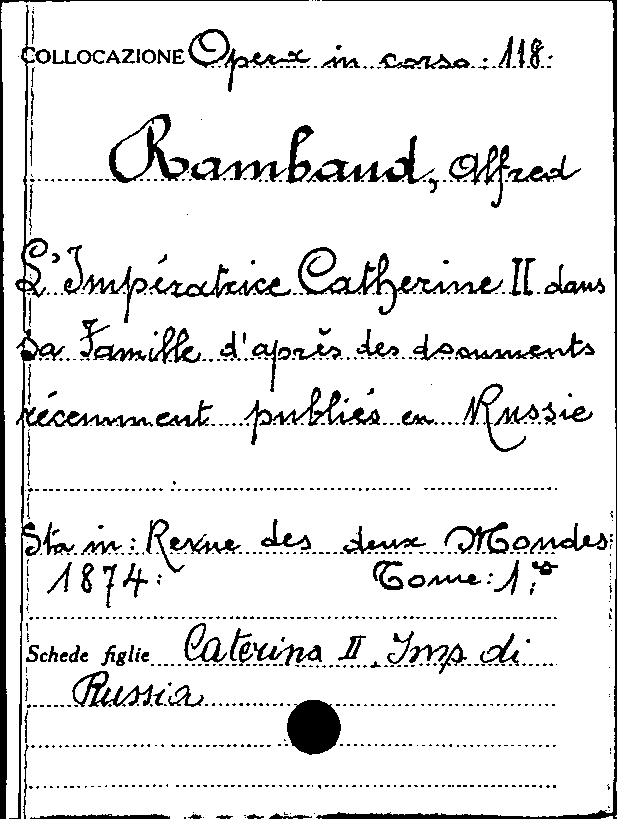 COLLOCAZIONE Opera in corso: 118:
Rambaud, Alfred
L'Impératrice Catherine II dans
sa Famille d'après des documents
récemment publiés en Russie
Sta in: Revue des deux Mondes
1874: Tome: 1.º
Schede figlie Caterina II. Imp di
Russia